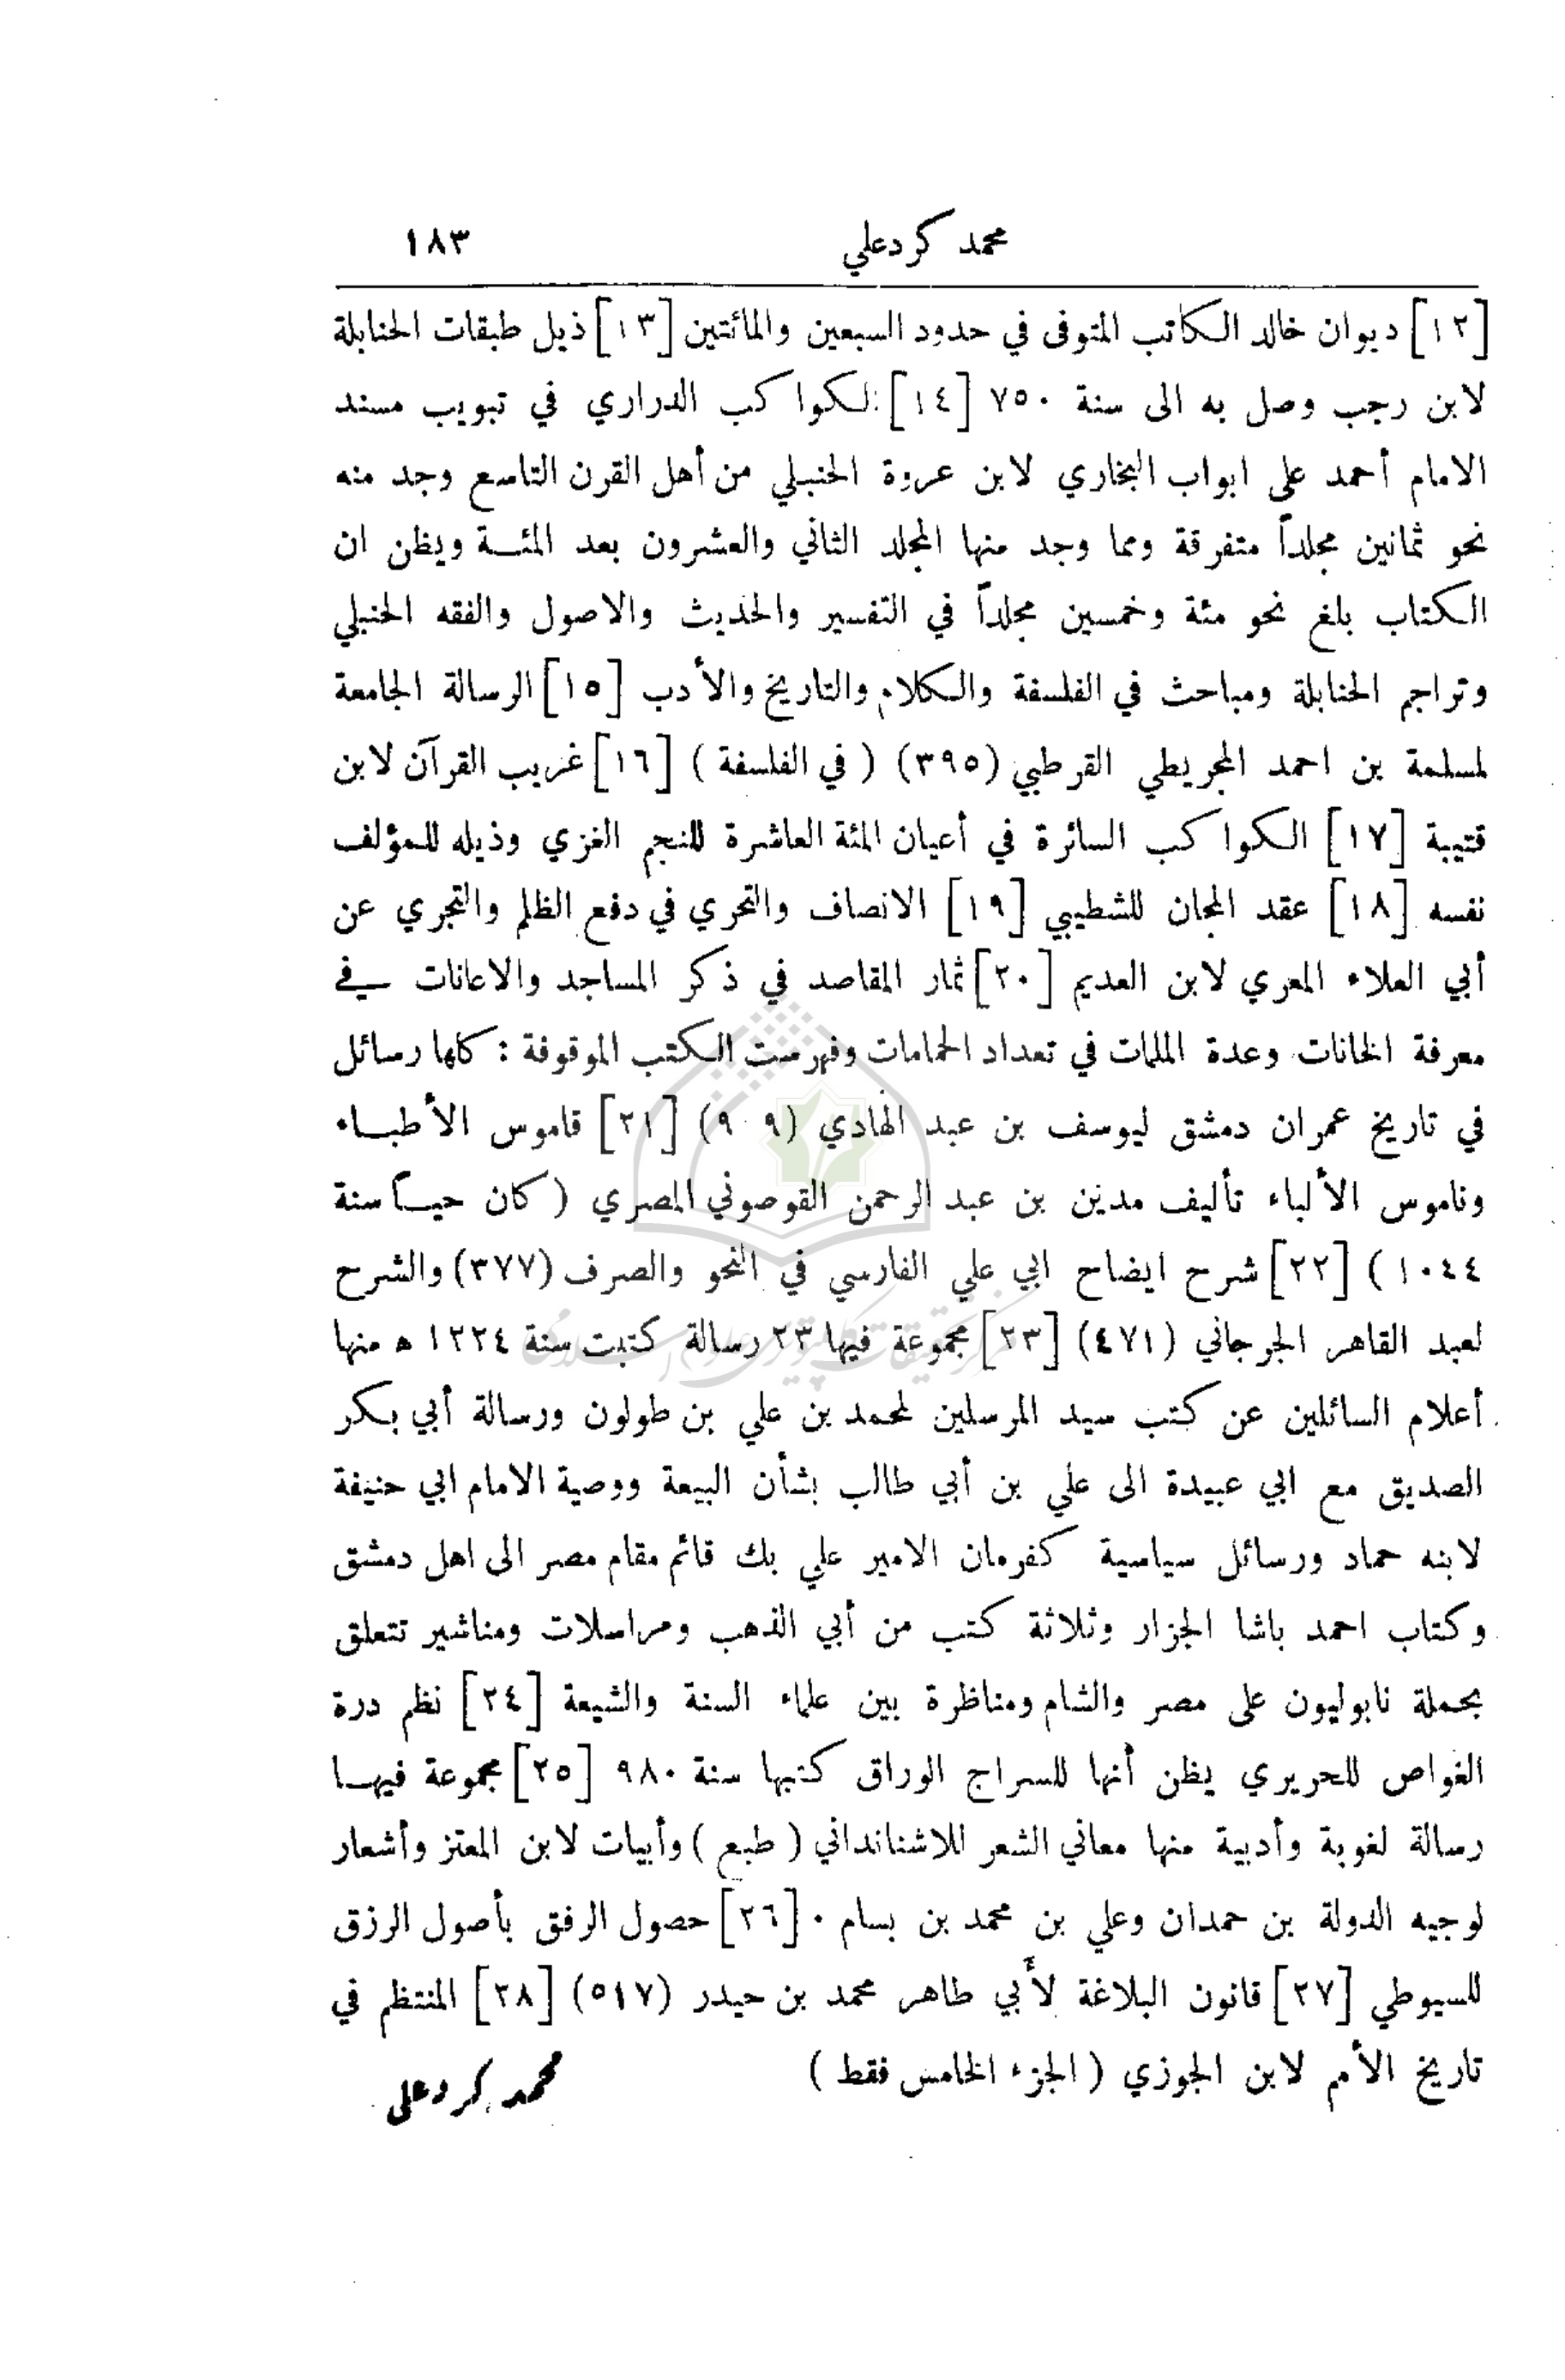 محمد كردعلي ١٨٣
[١٢] ديوان خالد الكاتب المتوفى في حدود السبعين والمائتين [١٣] ذيل طبقات الحنابلة
لابن رجب وصل به الى سنة ٧٥٠ [١٤] الكواكب الدراري في تبويب مسند
الامام أحمد على ابواب البخاري لابن عروة الحنبلي من أهل القرن التاسع وجد منه
نحو ثمانين مجلداً متفرقة ومما وجد منها المجلد الثاني والعشرون بعد المئة ويظن ان
الكتاب بلغ نحو مئة وخمسين مجلداً في التفسير والحديث والاصول والفقه الحنبلي
وتراجم الحنابلة ومباحث في الفلسفة والكلام والتاريخ والأدب [١٥] الرسالة الجامعة
لمسلمة بن احمد المجريطي القرطبي (٣٩٥) ( في الفلسفة ) [١٦] غريب القرآن لابن
قتيبة [١٧] الكواكب السائرة في أعيان المئة العاشرة للنجم الغزي وذيله للمؤلف
نفسه [١٨] عقد الجمان للشطيبي [١٩] الانصاف والتحري في دفع الظلم والتجري عن
أبي العلاء المعري لابن العديم [٢٠] ثمار المقاصد في ذكر المساجد والاعانات في
معرفة الخانات وعدة الملمات في تعداد الحمامات وفهرست الكتب الموقوفة : كلها رسائل
في تاريخ عمران دمشق ليوسف بن عبد الهادي (٩٠٩) [٢١] قاموس الأطباء
وناموس الألباء تأليف مدين بن عبد الرحمن القوصوني المصري ( كان حياً سنة
١٠٤٤ ) [٢٢] شرح ايضاح ابي علي الفارسي في النحو والصرف (٣٧٧) والشرح
لعبد القاهر الجرجاني (٤٧١) [٢٣] مجموعة فيها ٢٣ رسالة كتبت سنة ١٢٢٤ ه منها
أعلام السائلين عن كتب سيد المرسلين لمحمد بن علي بن طولون ورسالة أبي بكر
الصديق مع ابي عبيدة الى علي بن أبي طالب بشأن البيعة ووصية الامام ابي حنيفة
لابنه حماد ورسائل سياسية كفرمان الامير علي بك قائم مقام مصر الى اهل دمشق
وكتاب احمد باشا الجزار وثلاثة كتب من أبي الذهب ومراسلات ومناشير تتعلق
بحملة نابوليون على مصر والشام ومناظرة بين علماء السنة والشيعة [٢٤] نظم درة
الغواص للحريري يظن أنها للسراج الوراق كتبها سنة ٩٨٠ [٢٥] مجموعة فيها
رسالة لغوية وأدبية منها معاني الشعر للاشنانداني ( طبع ) وأبيات لابن المعتز وأشعار
لوجيه الدولة بن حمدان وعلي بن محمد بن بسام . [٢٦] حصول الرفق بأصول الرزق
للسيوطي [٢٧] قانون البلاغة لأبي طاهر محمد بن حيدر (٥١٧) [٢٨] المنتظم في
تاريخ الأمم لابن الجوزي ( الجزء الخامس فقط )
محمد كردعلى